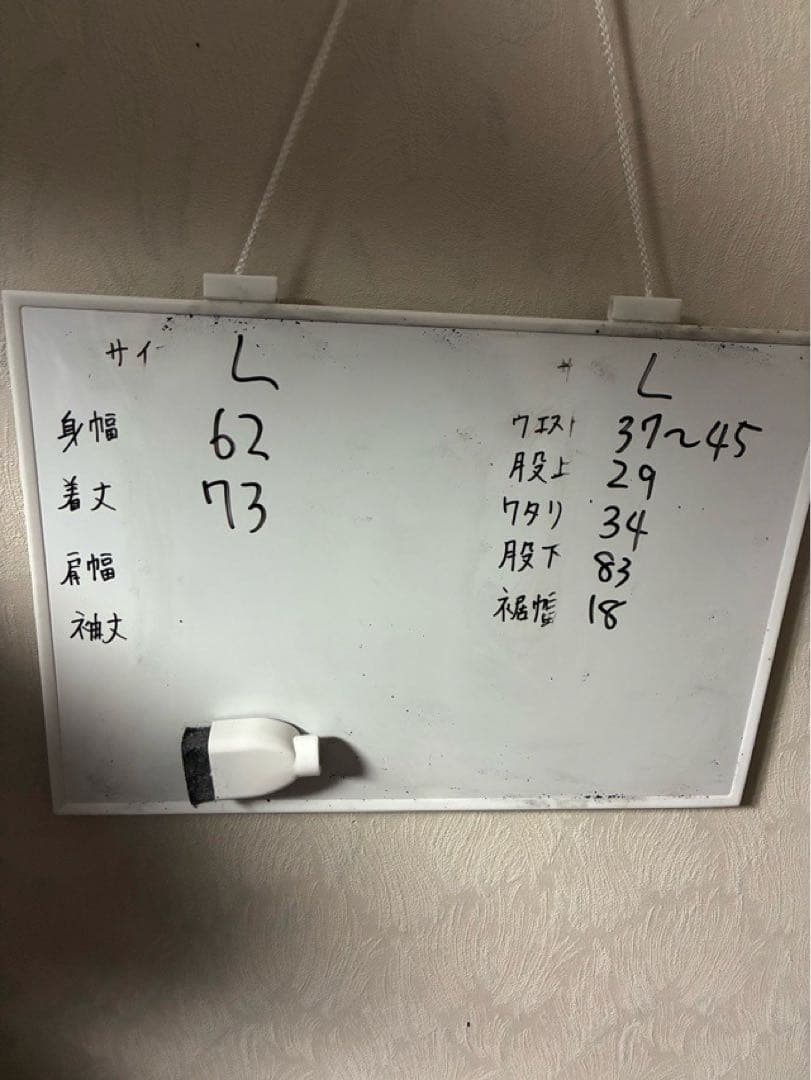 サイ L
身幅 62
着丈 73
肩幅
袖丈
サ L
ウエスト 37~45
股上 29
ワタリ 34
股下 83
裾幅 18